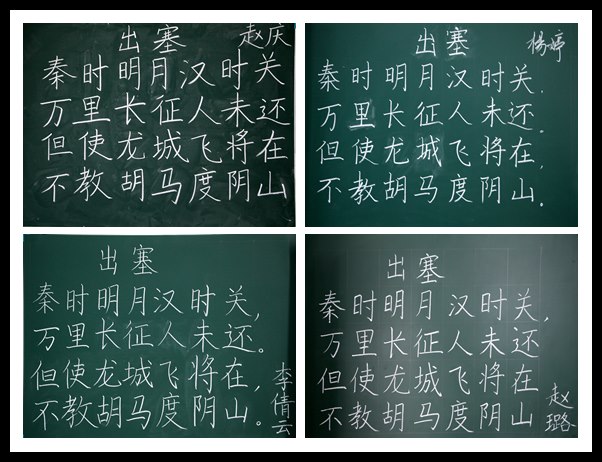 出塞 赵庆
秦时明月汉时关
万里长征人未还
但使龙城飞将在
不教胡马度阴山
出塞 杨婷
秦时明月汉时关.
万里长征人未还。
但使龙城飞将在.
不教胡马度阴山。
出塞
秦时明月汉时关,
万里长征人未还。
但使龙城飞将在,
不教胡马度阴山。
李倩云
出塞
秦时明月汉时关,
万里长征人未还
但使龙城飞将在
不教胡马度阴山
赵璐